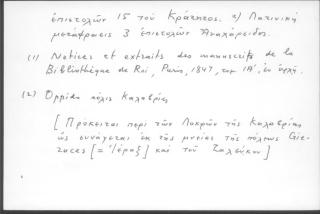 ἐπιστολῶν 15 τοῦ Κράτητος. 2) Λατινικὴ
μετάφρασις 3 ἐπιστολῶν Ἀναχάρσιδος.
(1) Notices et extraits des manuscrits de la
Bibliothèque de Roi, Paris, 1847, τομ. ΙΑ', ἐν ἀρχῇ.
(2) Oppida πόλις Καλαβρίας
[Πρόκειται περὶ τῶν Λοκρῶν τῆς Καλαβρίας
ὡς συνάγεται ἐκ τῆς μνείας τῆς πόλεως Gie-
races [= Ἱέραξ] καὶ τοῦ Ζαλεύκου]